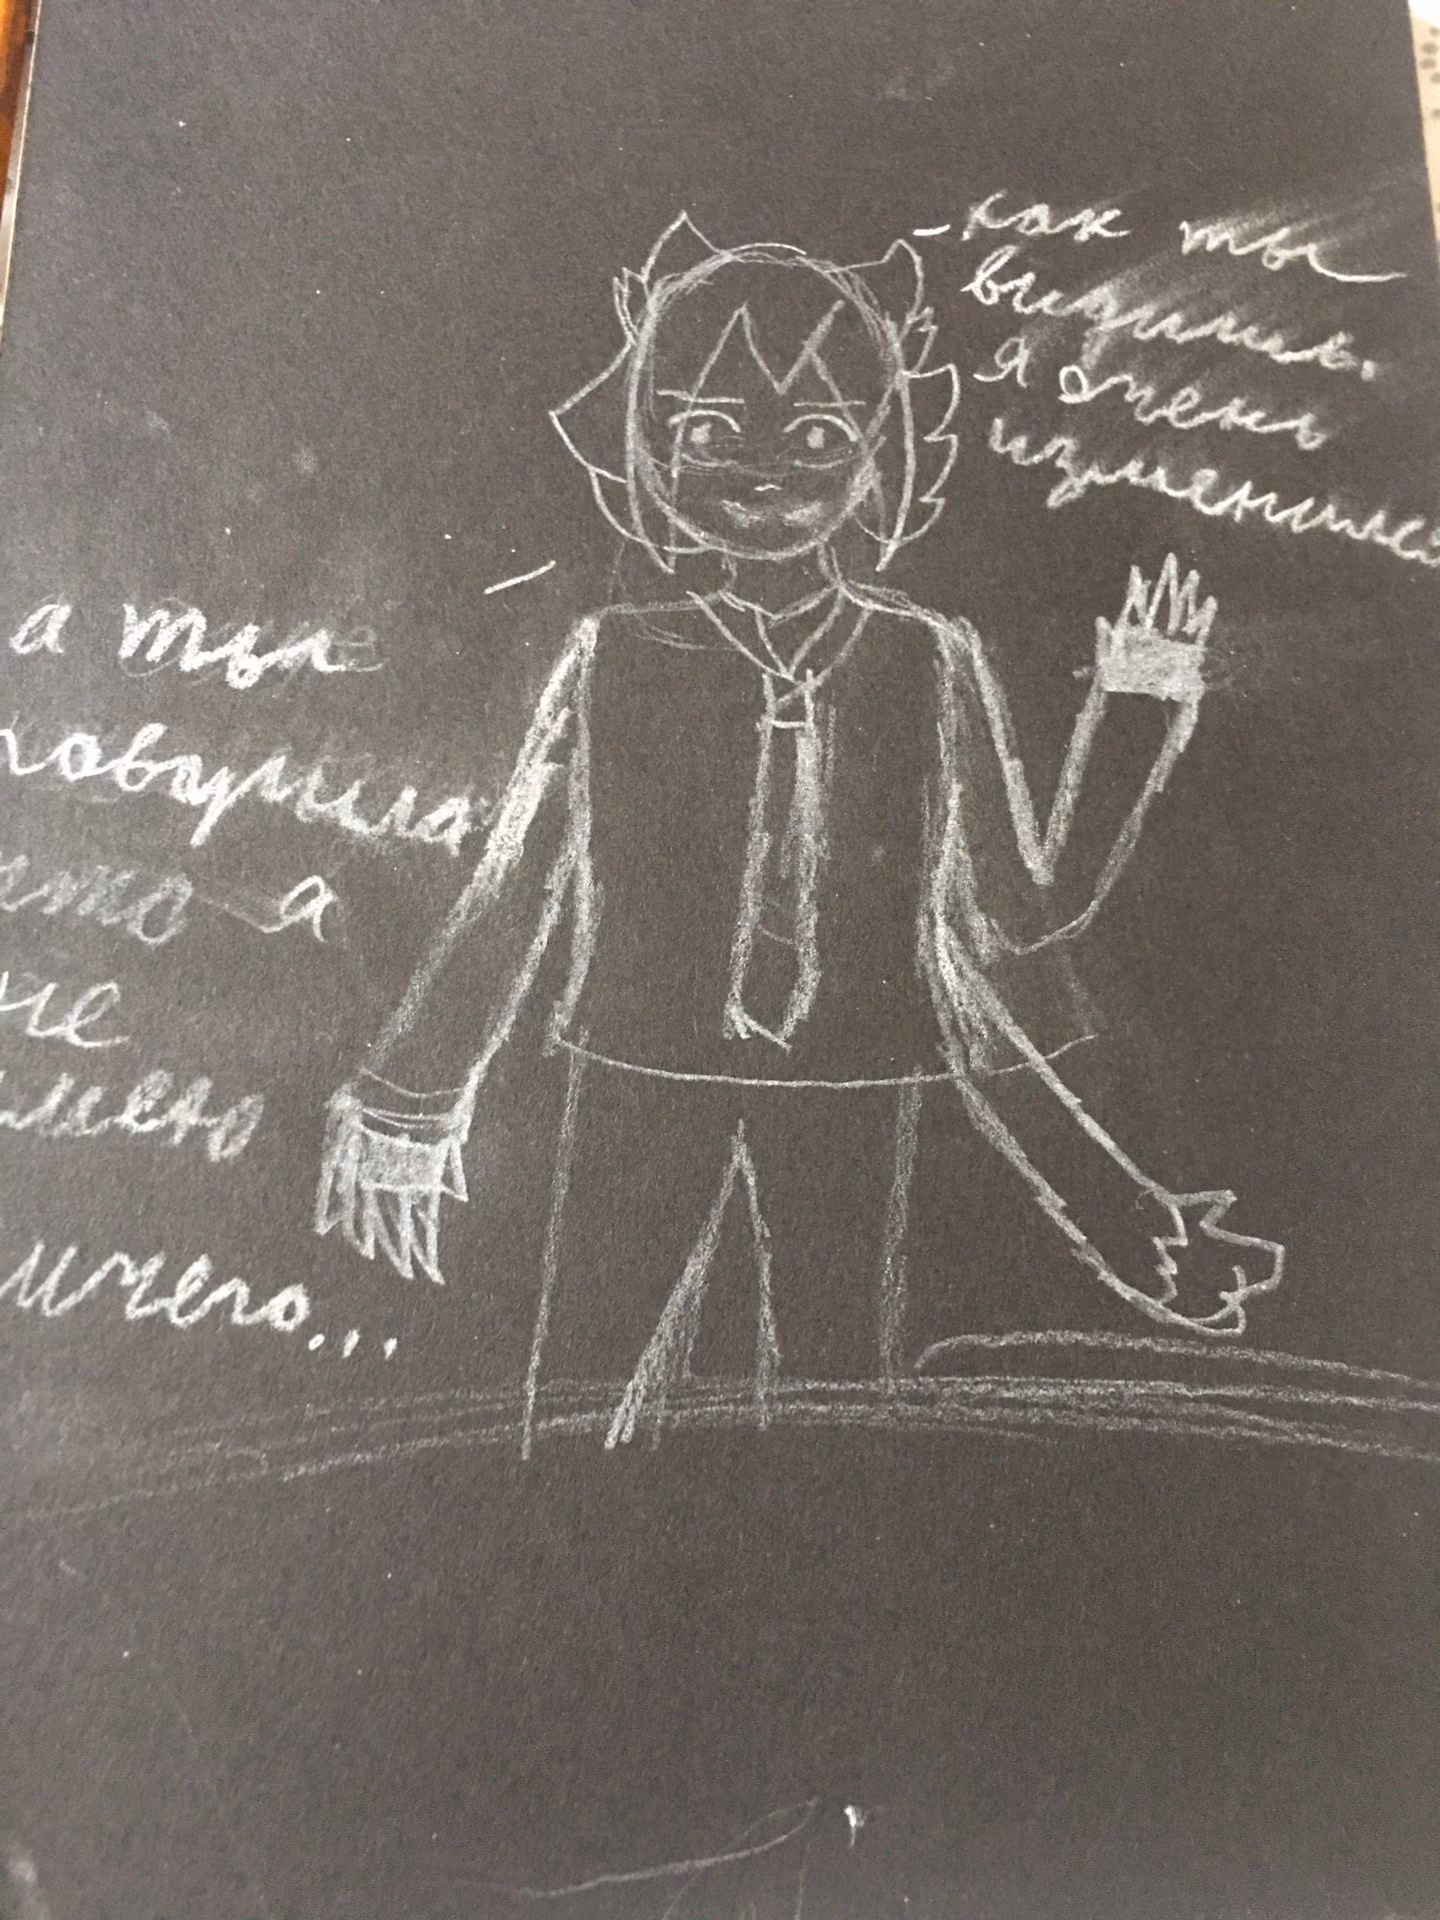 - как ты
видишь.
я очень
изменился
- а ты
говорила
что я
не
умею
ничего...